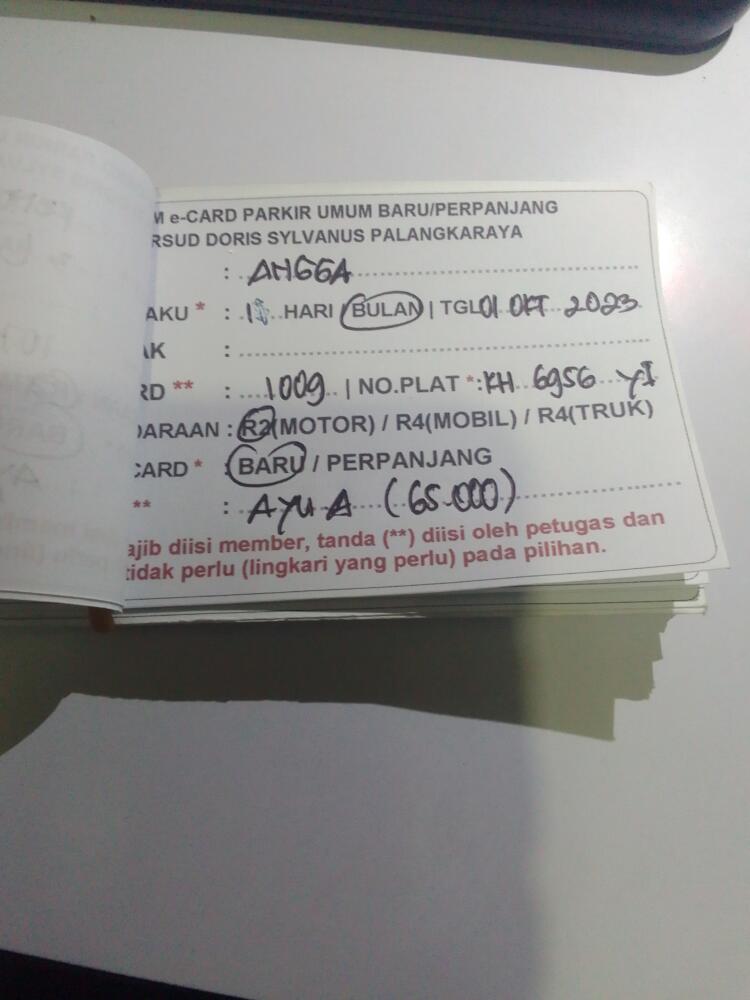 M e-CARD PARKIR UMUM BARU/PERPANJANG
RSUD DORIS SYLVANUS PALANGKARAYA
: ANGGA
AKU * : 1 HARI / BULAN | TGL 01 OKT 2023
AK :
RD ** : 1009 | NO.PLAT *: KH 6956 YI
DARAAN : R2(MOTOR) / R4(MOBIL) / R4(TRUK)
CARD * : BARU / PERPANJANG
** : AYU A (65.000)
ajib diisi member, tanda (**) diisi oleh petugas dan
tidak perlu (lingkari yang perlu) pada pilihan.